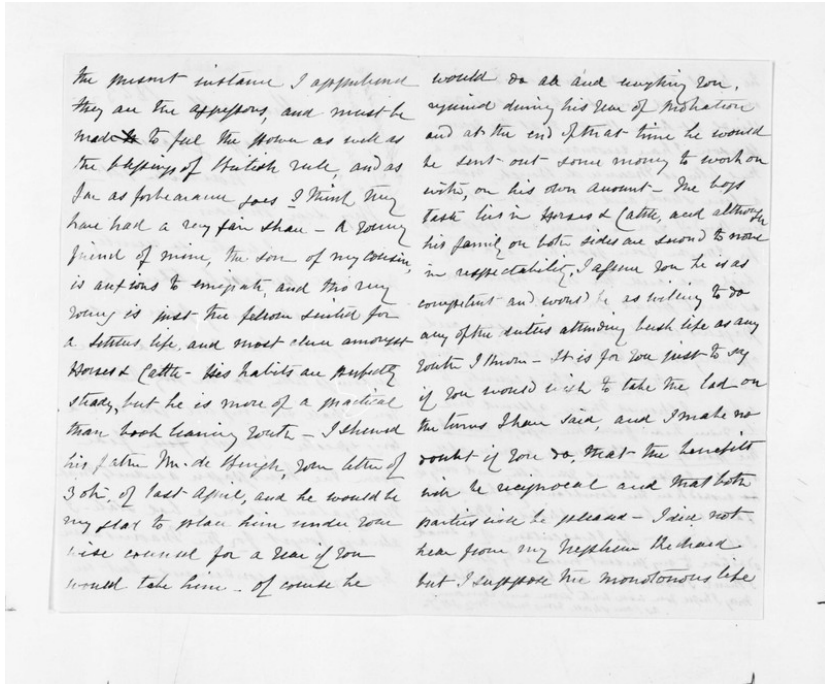 the present instance I apprehend
they are the aggressors, and must be
made to feel the power as well as
the blessings of British rule, and as
far as forbearance goes I think they
have had a very fair share - A young
friend of mine, the son of my cousin,
is anxious to emigrate, and tho very
young is just the person suited for
a settlers life, and most clever amongst
Horses & Cattle - His habits are perfectly
steady, but he is more of a practical
than book learning youth - I shewed
his father Mr. de Burgh, your letter of
3oth, of last April, and he would be
very glad to place him under your
wise council for a year if you
would take him - of course he
would do all and anything you,
required during his year of probation
and at the end of that time he would
be sent out some money to work on
with, on his own account - The boys
taste lies in Horses & Cattle, and although
his family on both sides are second to none
in respectability, I assure you he is as
competent and would be as willing to do
any of the duties attending bush life as any
youth I know - It is for you just to say
if you would wish to take the lad on
the terms I have said, and I make no
doubt if you do that the benefit
will be reciprocal and that both
parties will be pleased - I did not
hear from my Nephew Richard
but I suppose the monotonous life